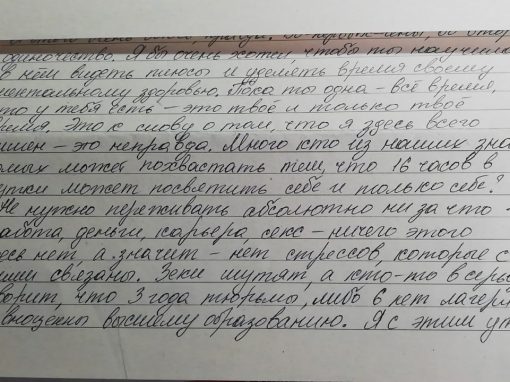 одиночество. Я бы очень хотел, чтобы ты научил
в нём видеть плюсы и уделять время своему
ментальному здоровью. Пока ты одна – всё время,
что у тебя есть – это твоё и только твоё
время. Это к слову о том, что я здесь всего
лишен – это неправда. Много кто из наших зна
омых может похвастать тем, что 16 часов в
утки может посвятить себе и только себе?
Не нужно переживать абсолютно ни за что –
абота, деньги, карьера, секс – ничего этого
десь нет, а значит – нет стрессов, которые с
ними связаны. Зеки шутят, а кто-то всерь
ворит, что 3 года тюрьмы, либо 6 лет лагеря
вноценны высшему образованию. Я с этим ут